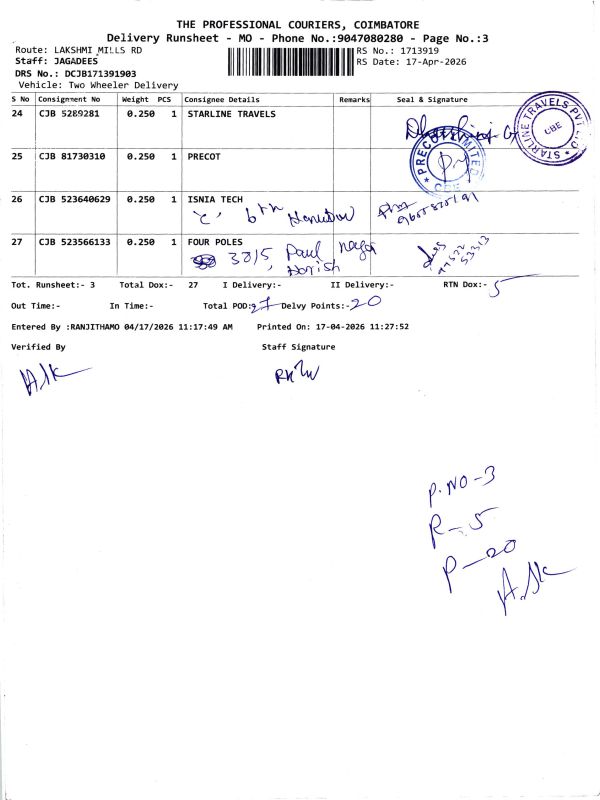 THE PROFESSIONAL COURIERS, COIMBATORE
Delivery Runsheet - MO - Phone No.:9047080280 - Page No.:3
Route: LAKSHMI MILLS RD
RS No.: 1713919
Staff: JAGADEES
RS Date: 17-Apr-2026
DRS No.: DCJB171391903
Vehicle: Two Wheeler Delivery
S No Consignment No Weight PCS Consignee Details Remarks Seal & Signature
24 CJB 5289281 0.250 1 STARLINE TRAVELS
STARLINE TRAVELS PVT LTD CBE
25 CJB 81730310 0.250 1 PRECOT
PRECOT LIMITED CBE
26 CJB 523640629 0.250 1 ISNIA TECH
'C'
27 CJB 523566133 0.250 1 FOUR POLES
3815 Paul naga
Harish
Tot. Runsheet:- 3 Total Dox:- 27 I Delivery:- II Delivery:- RTN Dox:- 5
Out Time:- In Time:- Total POD:27 Delvy Points:-20
Entered By :RANJITHAMO 04/17/2026 11:17:49 AM Printed On: 17-04-2026 11:27:52
Verified By Staff Signature
P.NO-3
R-5
P-20